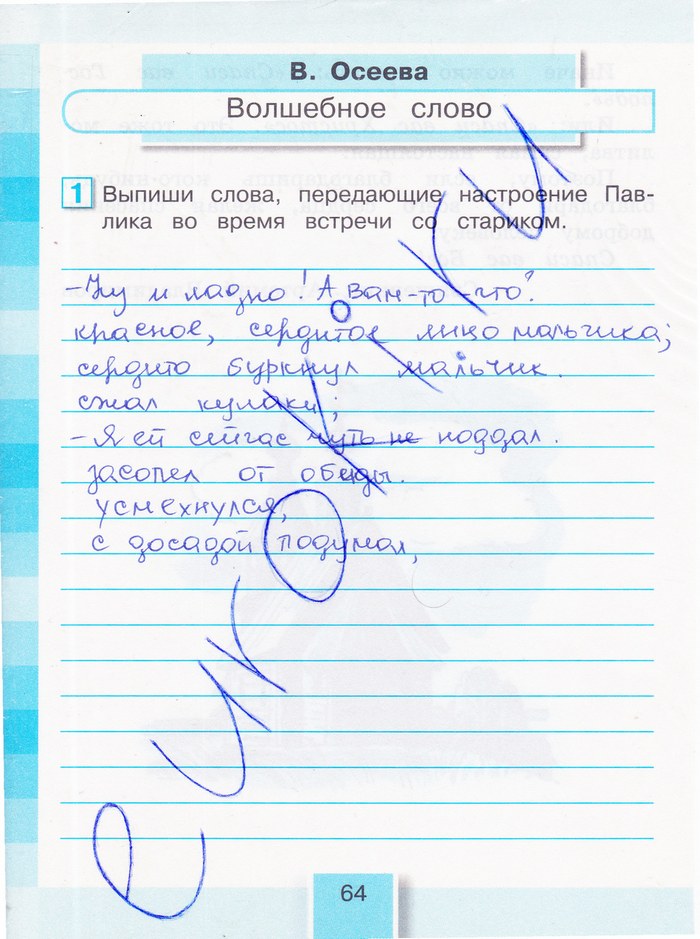 В. Осеева
Волшебное слово
1 Выпиши слова, передающие настроение Пав-
лика во время встречи со стариком.
– Ну и ладно! А вам-то что?
красное, сердитое лицо мальчика;
сердито буркнул мальчик.
сжал кулаки;
– Я ей сейчас чуть не поддал.
засопел от обиды.
усмехнулся,
с досадой подумал,
64